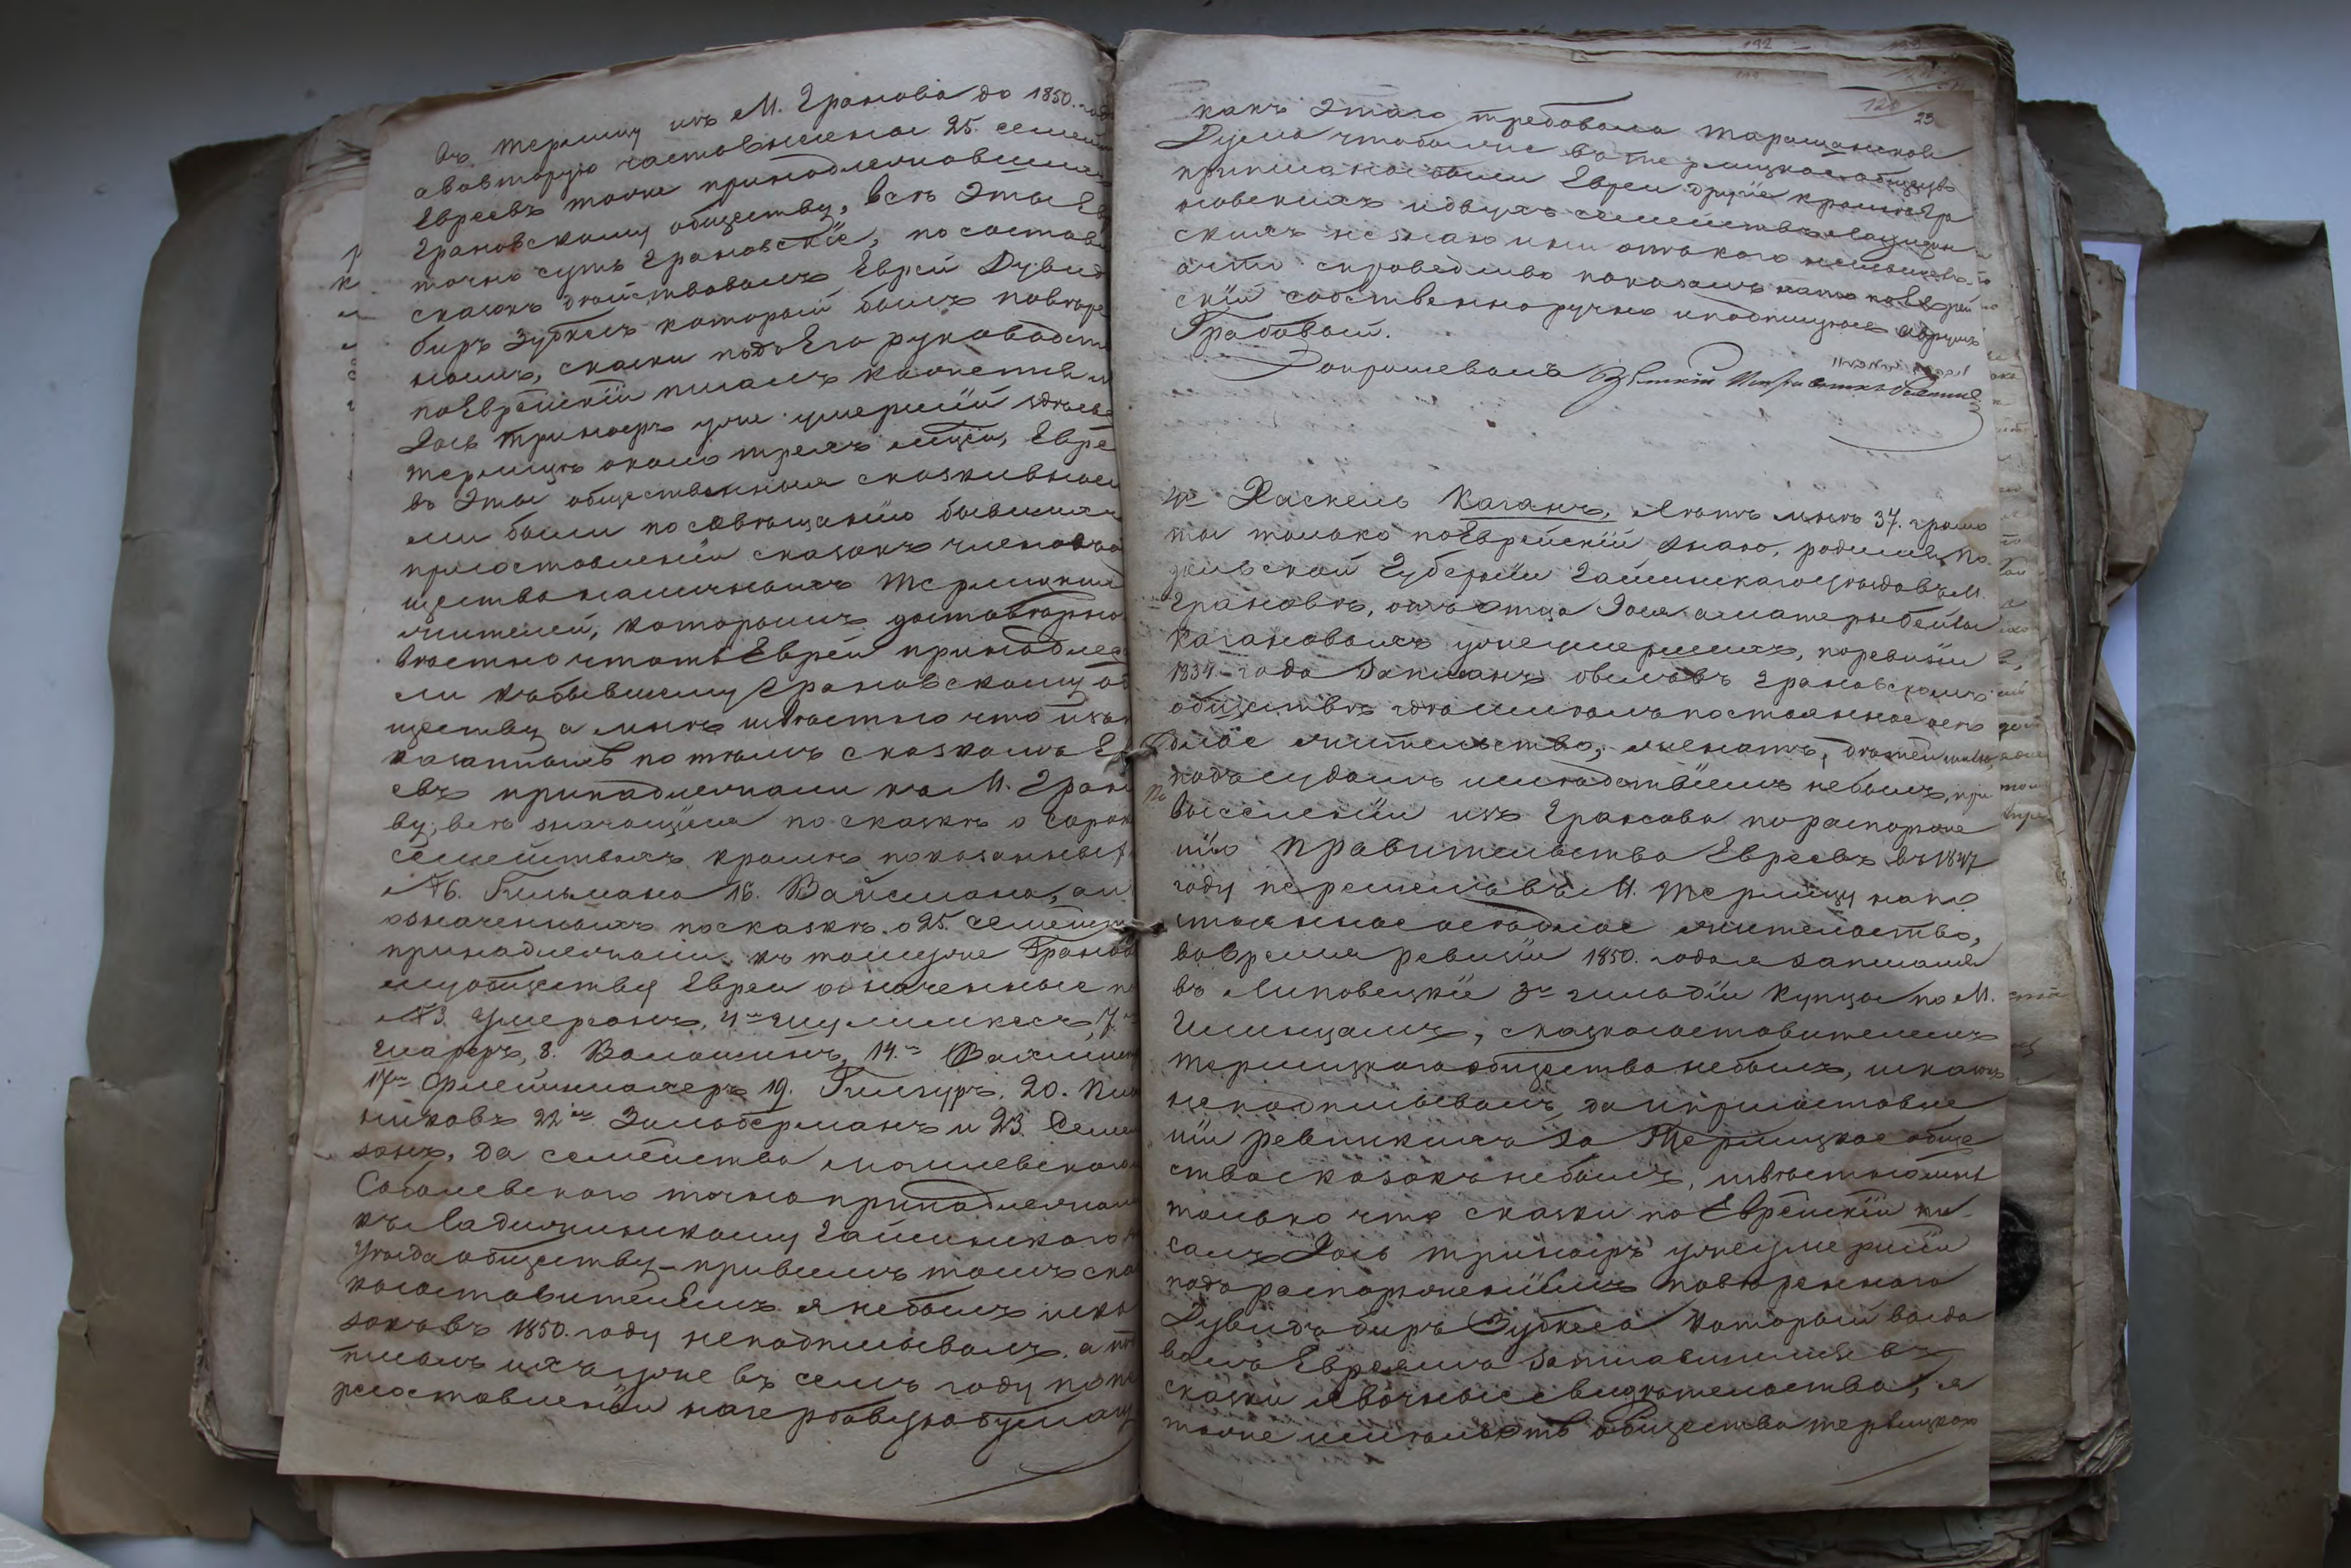 въ Терлицу изъ М. Гранова до 1850. года
а во вторую составленная 25. семей
Евреевъ тоже принадлежавшихъ
Грановскому обществу, всѣ эти Ев
точно суть Грановскіе, по состав
сказокъ дѣйствовалъ Еврей Дувид
беръ Зубкесъ который былъ повѣре
нымъ, сказки подъ Его руководст
по Еврейскіи писалъ
Іось Триногръ уже умершій здѣсь въ
Терлицѣ около трехъ лѣтъ, Евре
въ эти общественныя сказки внесе
ми были по совѣщанію бывшихъ
при составленіи сказокъ членовъ об
щества наличныхъ Терлицких
жителей, которымъ достовѣрно
вѣстно что тѣ Евреи принадлеж
ли къ бывшему Грановскому об
ществу а мнѣ извѣстно что изъ
казанныхъ по тѣмъ сказкамъ Евре
евъ принадлежали къ М. Грано
ву, всѣ значащіеся по сказкѣ о сорок
семействахъ кромѣ показанныхъ
№ 6. Гильмана 16. Вайсмана, а из
означенныхъ по сказкѣ о 25. семейст
принадлежали къ тому же Гранов
му обществу Евреи означенные по
№ 3. 4й 7й
8. Волошинъ, 14й
17й Флейшмахеръ 19. 20.
никовъ 22й Зильберманъ и 23.
зонъ, да семейства
Соболевского точно принадлежал
къ Ладыжинскому Гайсинского
Уѣзда обществу – при всемъ томъ ска
косоставителемъ я не былъ и ска
зокъ въ 1850. году не подписывалъ, а под
писалъ ихъ уже въ семъ году по
ресоставленіи на гербовую бумагу
128
23
какъ этого требовала Таращанская
Дума чтобы же въ Терлицкое общество
приписаны были Евреи другіе кромѣ Гра
новскихъ и двухъ семействъ Ладыжин
скихъ не знаю и ни отъ кого не слышалъ,
что справедливо показалъ по Еврей
скіи собственноручно и подписуюсь
Грабовой.
Допрашевалъ Земскій Исправникъ
4й Хаскель Каганъ, лѣтъ мнѣ 37. грамо
ты только по Еврейскіи знаю, родился По
дольской Губерніи Гайсинского уѣзда въ М.
Грановѣ, отъ отца а матери Бейлы
Кагановыхъ уже умершихъ, по ревизіи
1834. года записанъ былъ въ Грановскомъ
обществѣ гдѣ имѣлъ постоянное осѣ
длое жительство, женатъ, дѣтей имѣю,
подъ судомъ и слѣдствіемъ не былъ, при
выселеніи изъ Гранова по распоряже
нію правительства Евреевъ въ 1847
году перешелъ въ М. Терлицу на по
стоянное осѣдлое жительство,
во время ревизіи 1850. года я записался
въ Липовецкіе 3й гильдіи купцы по М.
Ильинцамъ, сказкосоставителемъ
Терлицкого общества не былъ, и сказокъ
не подписывалъ, да и при составле
ніи ревизкихъ за Терлицкое обще
ство сказокъ не былъ, извѣстно мнѣ
только что сказки по Еврейскіи пи
салъ Іось Триногръ уже умершій
подъ распоряженіемъ повѣренного
Дувида бера Зубкеса который выда
валъ Евреямъ записавшимся въ
сказки явочные свидѣтельства, я
тоже имѣлъ отъ общества Терлицкаго